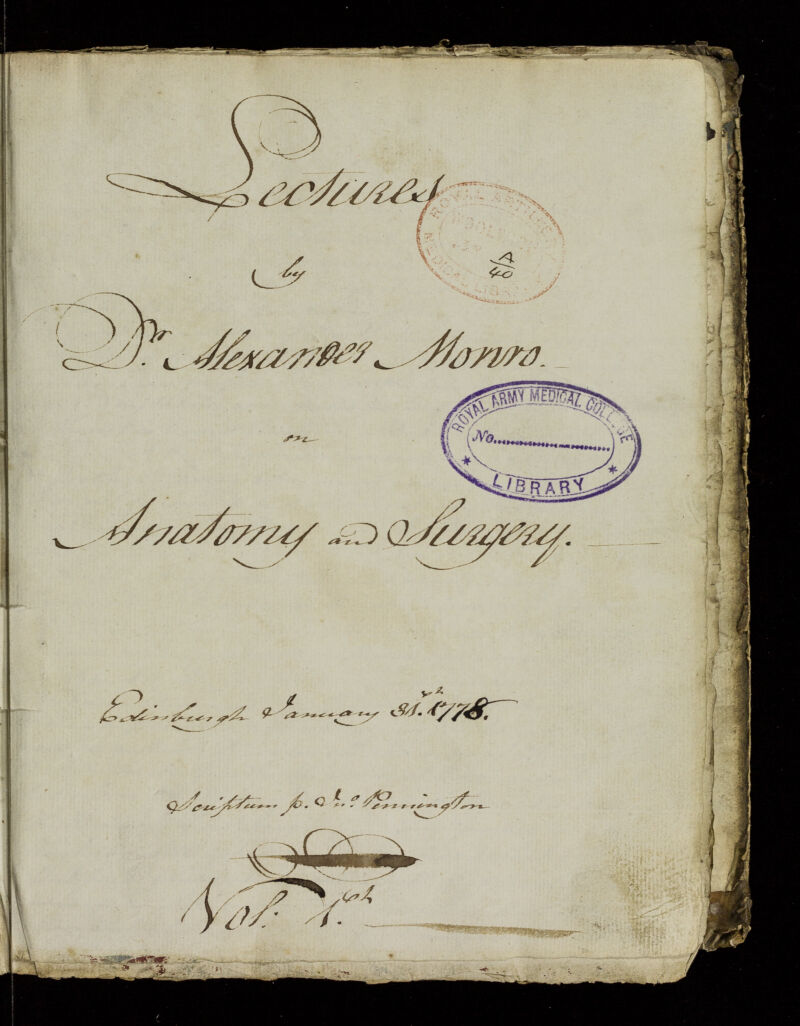 Lectures
ROYAL ARTILLERY
WOOLWICH
MEDICAL LIBRARY
A
40
by
Dr. Alexander Monro.
ROYAL ARMY MEDICAL COLLEGE
No.
LIBRARY
on
Anatomy and Surgery.
Edinburgh January 31.th 1778.
Scriptum p. Jno. Pennington
Vol: 1.th